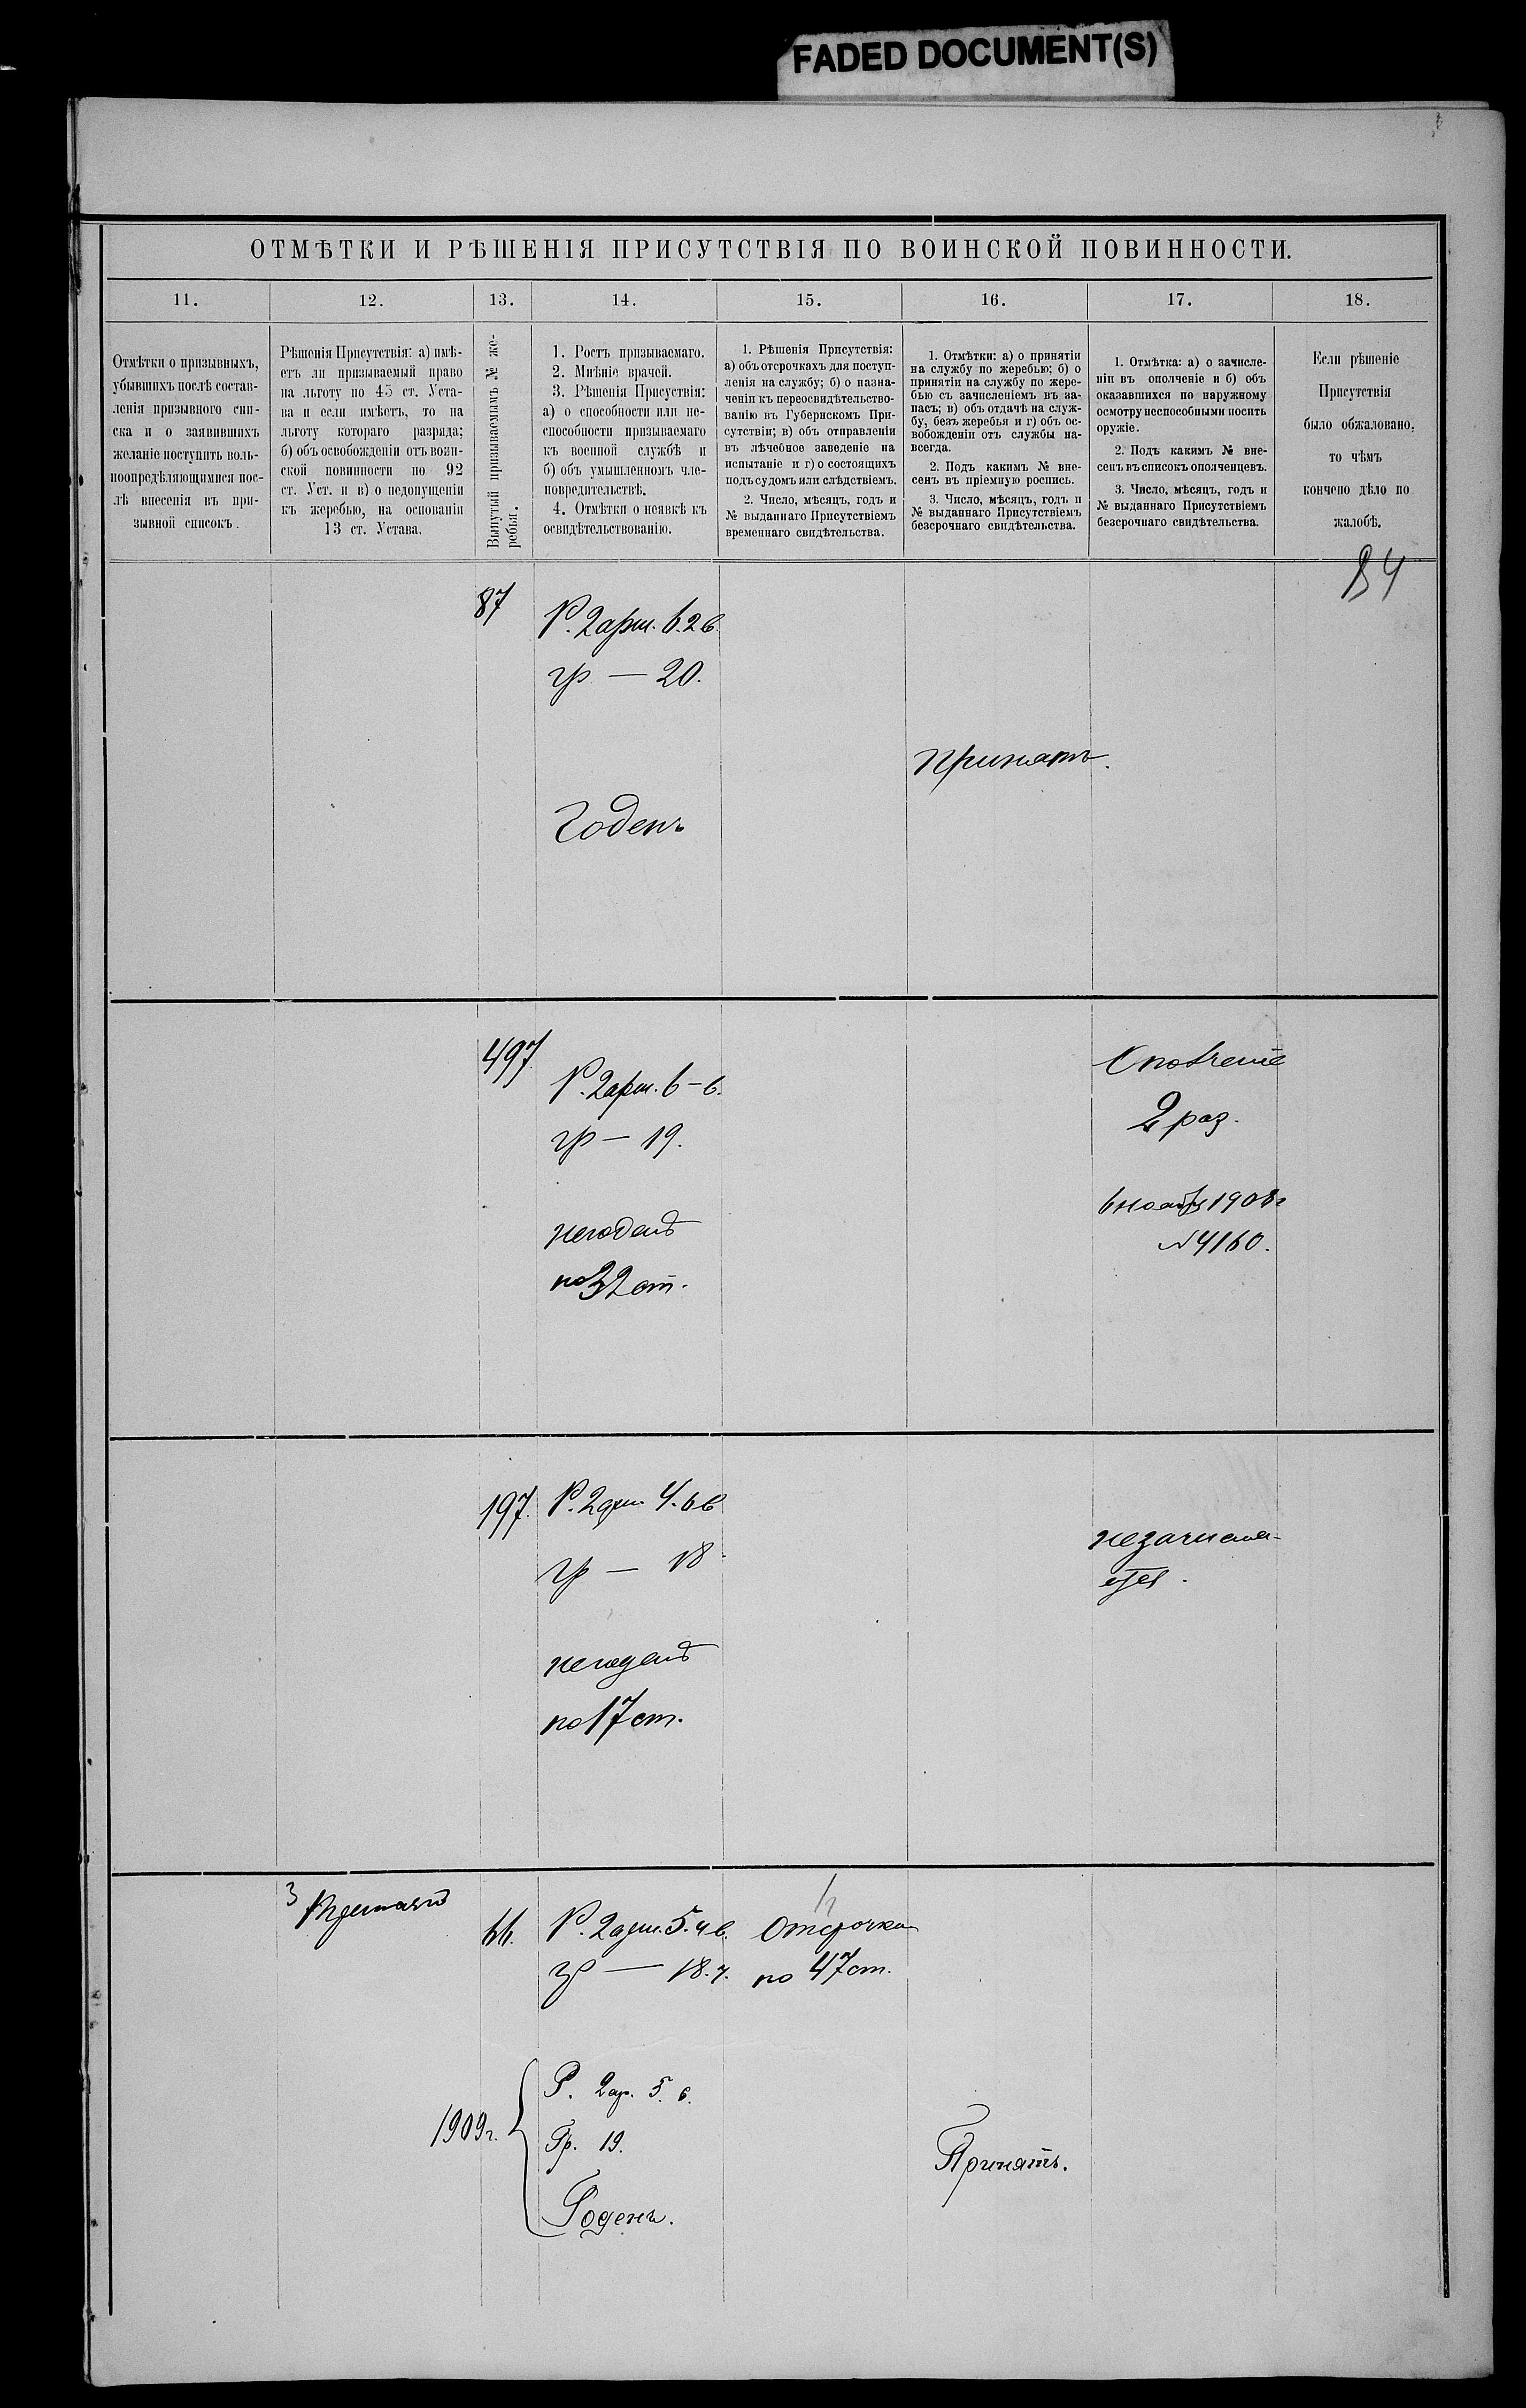 FADED DOCUMENT(S)
ОТМѢТКИ И РѢШЕНІЯ ПРИСУТСТВІЯ ПО ВОИНСКОЙ ПОВИННОСТИ.
11.
12.
13.
14.
15.
16.
17.
18.
Отмѣтки о призывныхъ,
убывшихъ послѣ состав-
ленія призывного спи-
ска и о заявившихъ
желаніе поступить воль-
ноопредѣляющимися пос-
лѣ внесенія въ при-
зывной списокъ.
Рѣшенія Присутствія: а) имѣ-
етъ ли призываемый право
на льготу по 45 ст. Уста-
ва и если имѣетъ, то на
льготу котораго разряда;
б) объ освобожденіи отъ воин-
ской повинности по 92
ст. Уст. и в) о недопущеніи
къ жеребью, на основаніи
13 ст. Устава.
Вынутый призываемымъ № же-
ребья.
1. Ростъ призываемаго.
2. Мнѣніе врачей.
3. Рѣшенія Присуствія:
а) о способности или не-
способности призываемаго
къ военной службѣ и
б) объ умышленномъ чле-
повредительствѣ.
4. Отмѣтки о неявкѣ къ
освидѣтельствованію.
1. Рѣшенія Присутствія:
а) объ отсрочкахъ для поступ-
ленія на службу; б) о назна-
ченіи къ переосвидѣтельство-
ванію въ Губернскомъ При-
сутствіи; в) объ отправленіи
въ лѣчебное заведеніе на
испытаніе и г) о состоящихъ
подъ судомъ или слѣдствіемъ.
2. Число, мѣсяцъ, годъ и
№ выданнаго Присутствіемъ
временнаго свидѣтельства.
1. Отмѣтки: а) о принятіи
на службу по жеребью; б) о
принятіи на службу по жере-
бью съ зачисленіемъ въ за-
пасъ; в) объ отдачѣ на служ-
бу, безъ жеребья и г) объ ос-
вобожденіи отъ службы на-
всегда.
2. Подъ какимъ № вне-
сенъ въ пріемную роспись.
3. Число, мѣсяцъ, годъ и
№ выданнаго Присутствіемъ
безсрочнаго свидѣтельства.
1. Отмѣтка: а) о зачисле-
ніи въ ополченіе и б) объ
оказавшихся по наружному
осмотру неспособными носить
оружіе.
2. Подъ какимъ № вне-
сенъ въ списокъ ополченцевъ.
3. Число, мѣсяцъ, годъ и
№ выданнаго Присутствіемъ
безсрочнаго свидѣтельства.
Если рѣшеніе
Присутствія
было обжаловано,
то чѣмъ
кончено дѣло по
жалобѣ.
84
87
Р. 2 арш. 6.2 в.
гр — 20.
Принятъ.
Годенъ
497
Р. 2 арш. 6 – в.
гр — 19.
негоденъ
по 32 ст.
Ополченіе
2 раз.
6 ноября 1908 г
№ 4160.
197.
Р. 2 арш. 4.6 в
гр — 18.
негоденъ
по 17 ст.
незачисля-
ется.
66.
Р. 2 арш. 5.4 в.
гр — 18.4.
Отсрочка
по 47 ст.
1909 г.
Р. 2 ар. 5. в.
Гр. 19.
Годенъ.
Принятъ.